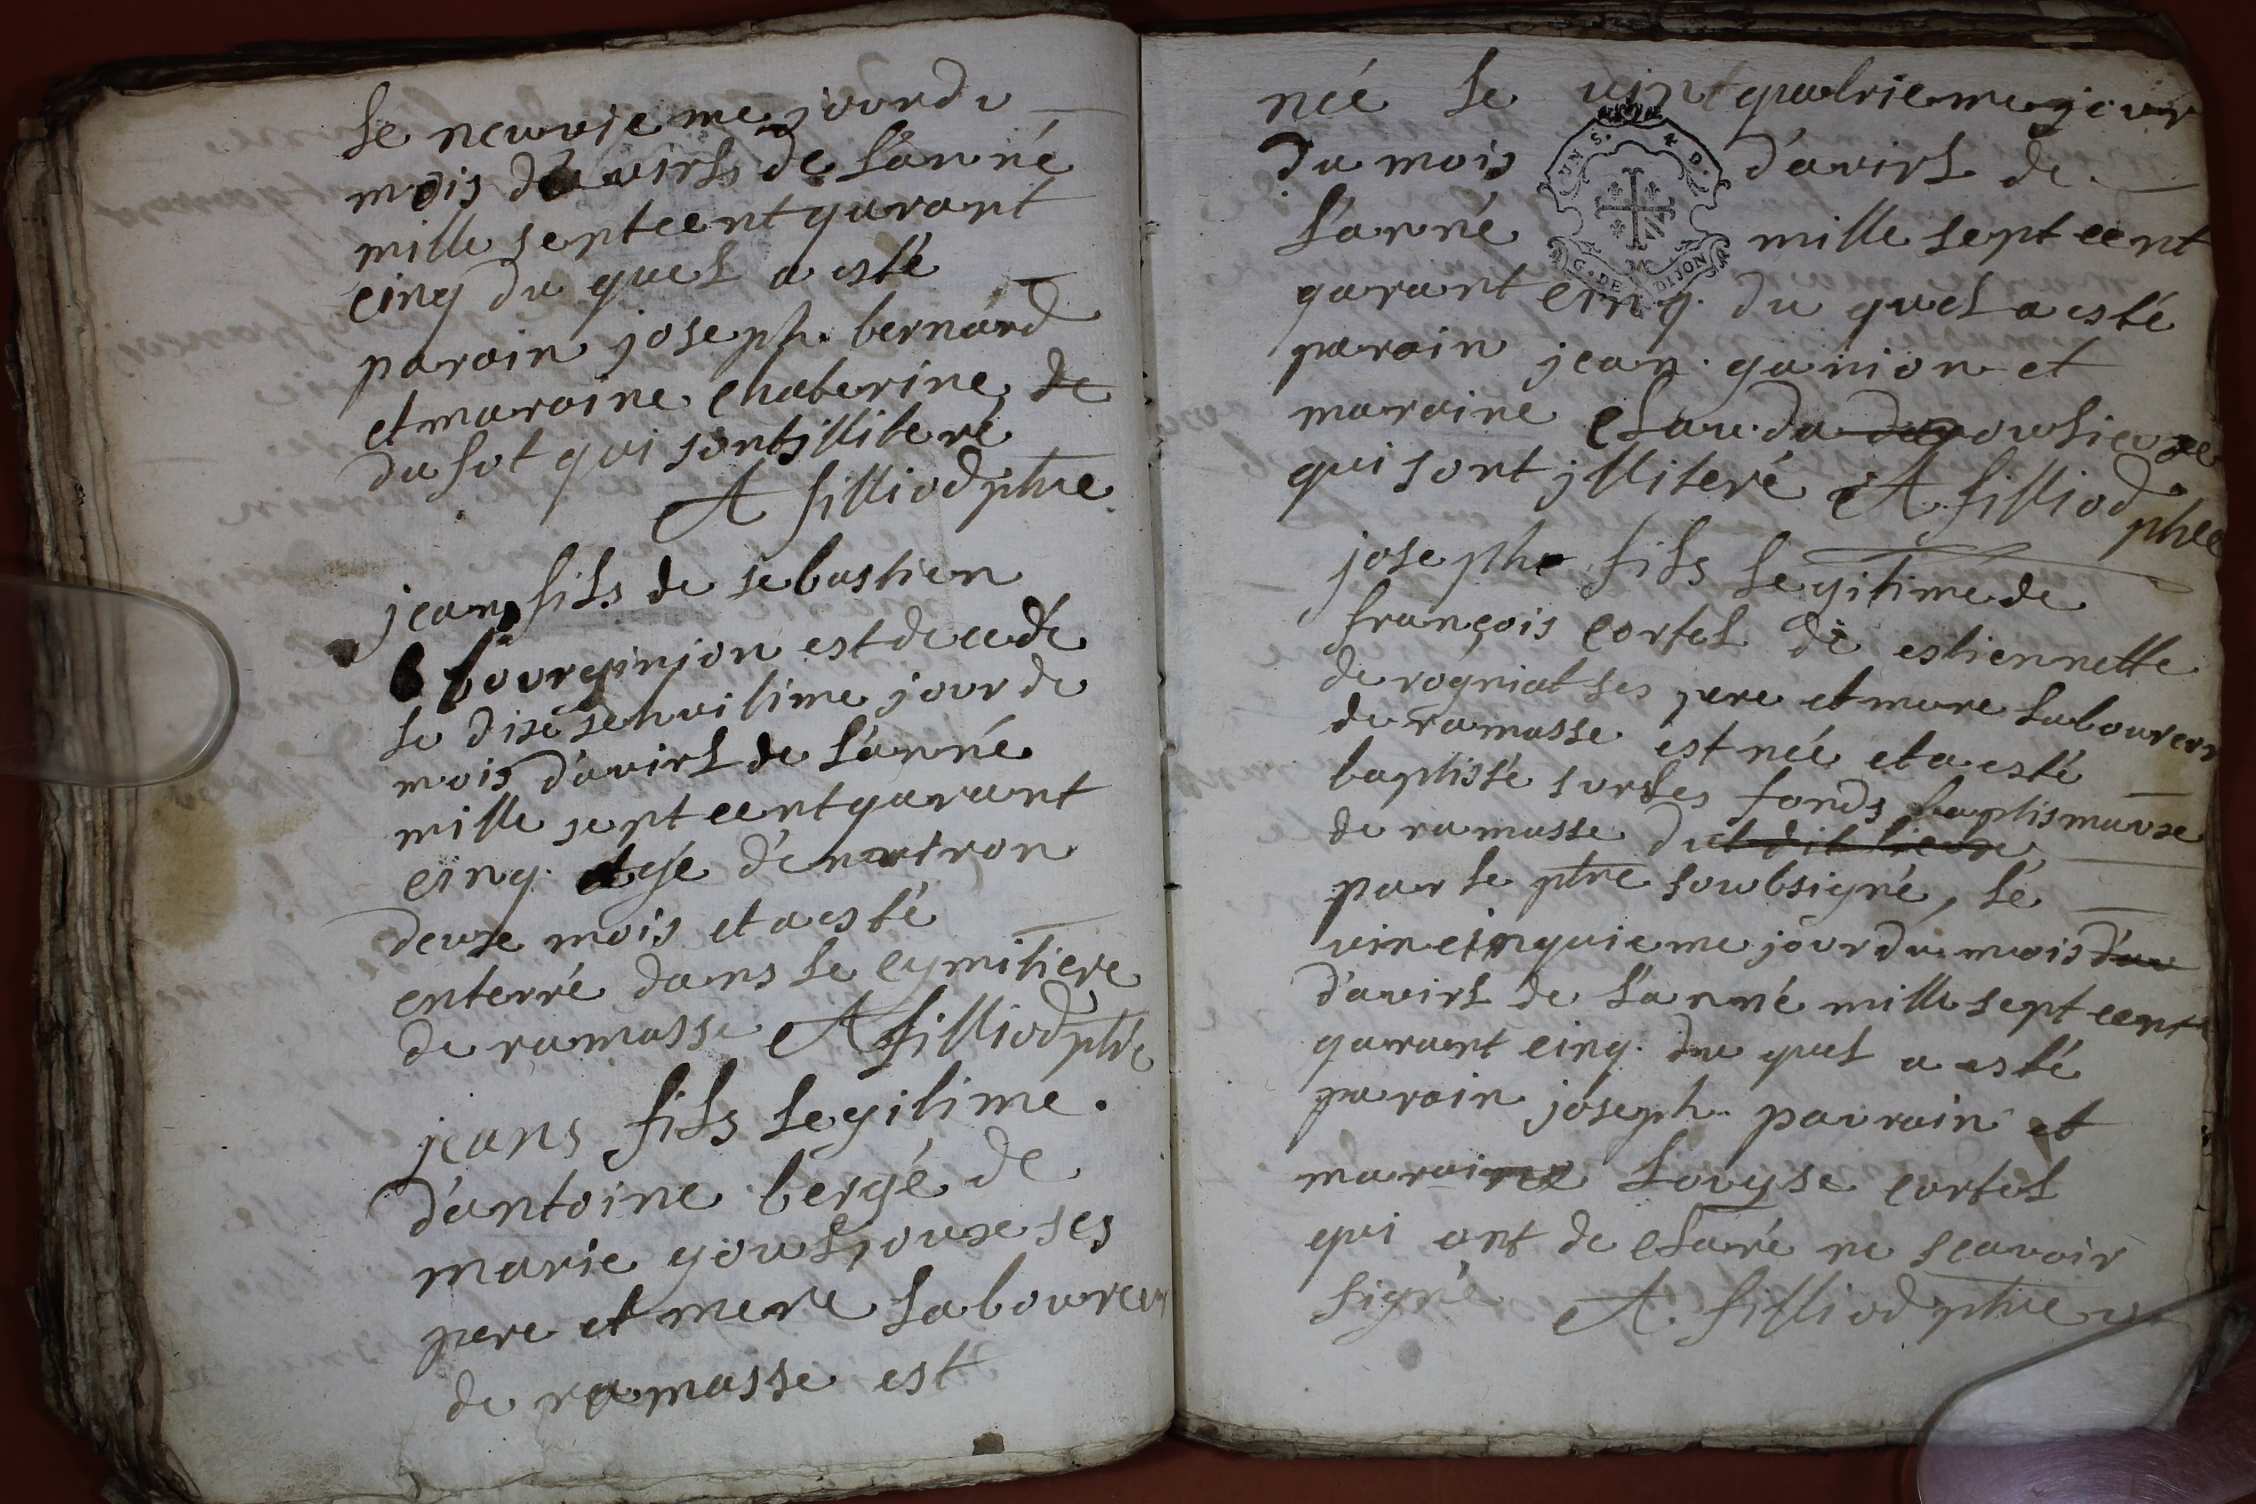 le neuvieme jourdu
mois d'avirls de l'anné
mille septcentquarant
cinq du quel a esté
parain joseph bernard
et maraine chaterine de
du sot qui sontilliteré
A filliod ptre
jean fils de sebastien
bourginion est decedé
le diseseptvitime jour de
mois d'avirl de l'anné
mille sept cent quarant
cinq agé d'environ
deuxe mois et a esté
enterré dans le cymitiere
de ramasse A filliod ptre
jeans fils legitime
d'antoine bergé de
marie gouljoux ses
pere et mere laboureur
de ramasse est
née le vint quatrieme jour
du mois d'avirl de
l'anné mille sept cent
quarant cinq du quel a esté
parain jean ganion et
maraine clauda
qui sont jlliteré A filliod
ptre
GEN S. R D.
G. DE DIJON
joseph fils legitime de
françois cortel de estiennette
de rogniat ses pere et mere laboureur
de ramasse est née et a esté
baptissé sur les fonds baptismause
de ramasse dudit lieux
par le ptre soubsigné, lé
vin cinquieme jour du mois d'av
d'avirl de l'anné mille sept cent
quarant cinq du quel a esté
parain joseph pavrain et
maraine louyse cortel
qui ont de claré ne scavoir
signé A. filliod ptre